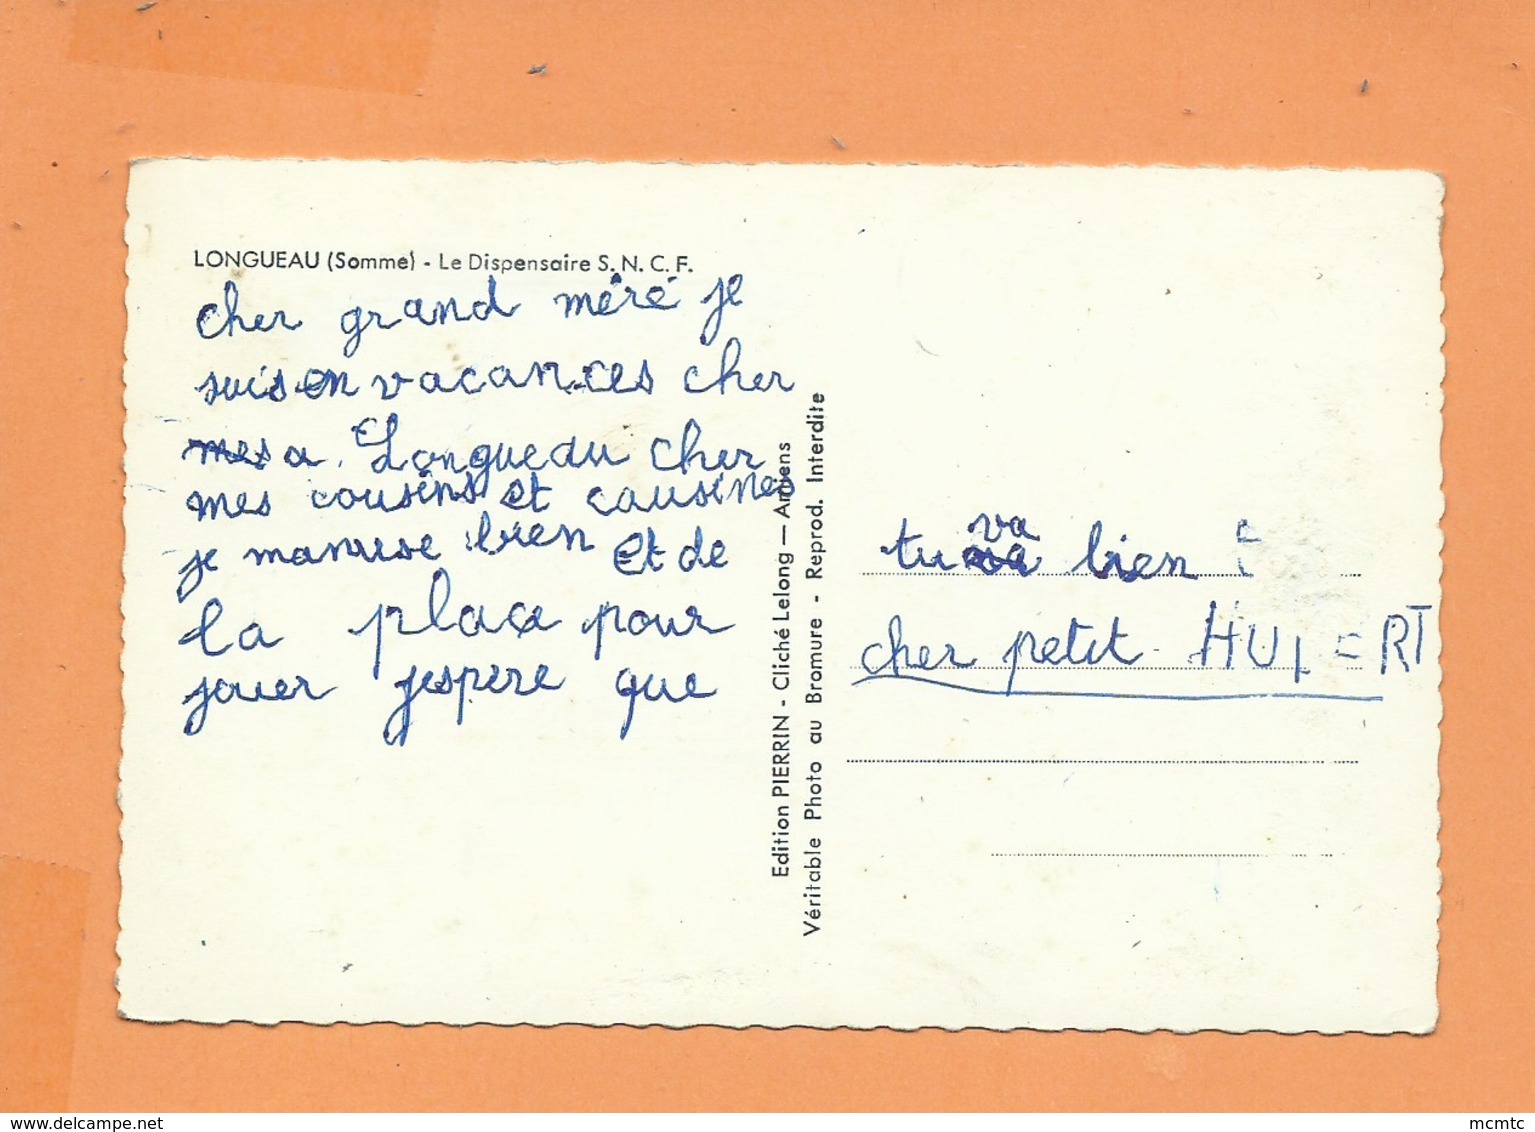 LONGUEAU (Somme) - Le Dispensaire S. N. C. F.
cher grand méré je
suis en vacances cher
mes a Longueau cher
mes cousins et causines
je manuse bien et de
la place pour
jouer jespere que
Edition PIERRIN - Cliché Lelong — Amiens
Véritable Photo au Bromure - Reprod. Interdite
va
tu va bien
cher petit
delcampe.net
mcmtc